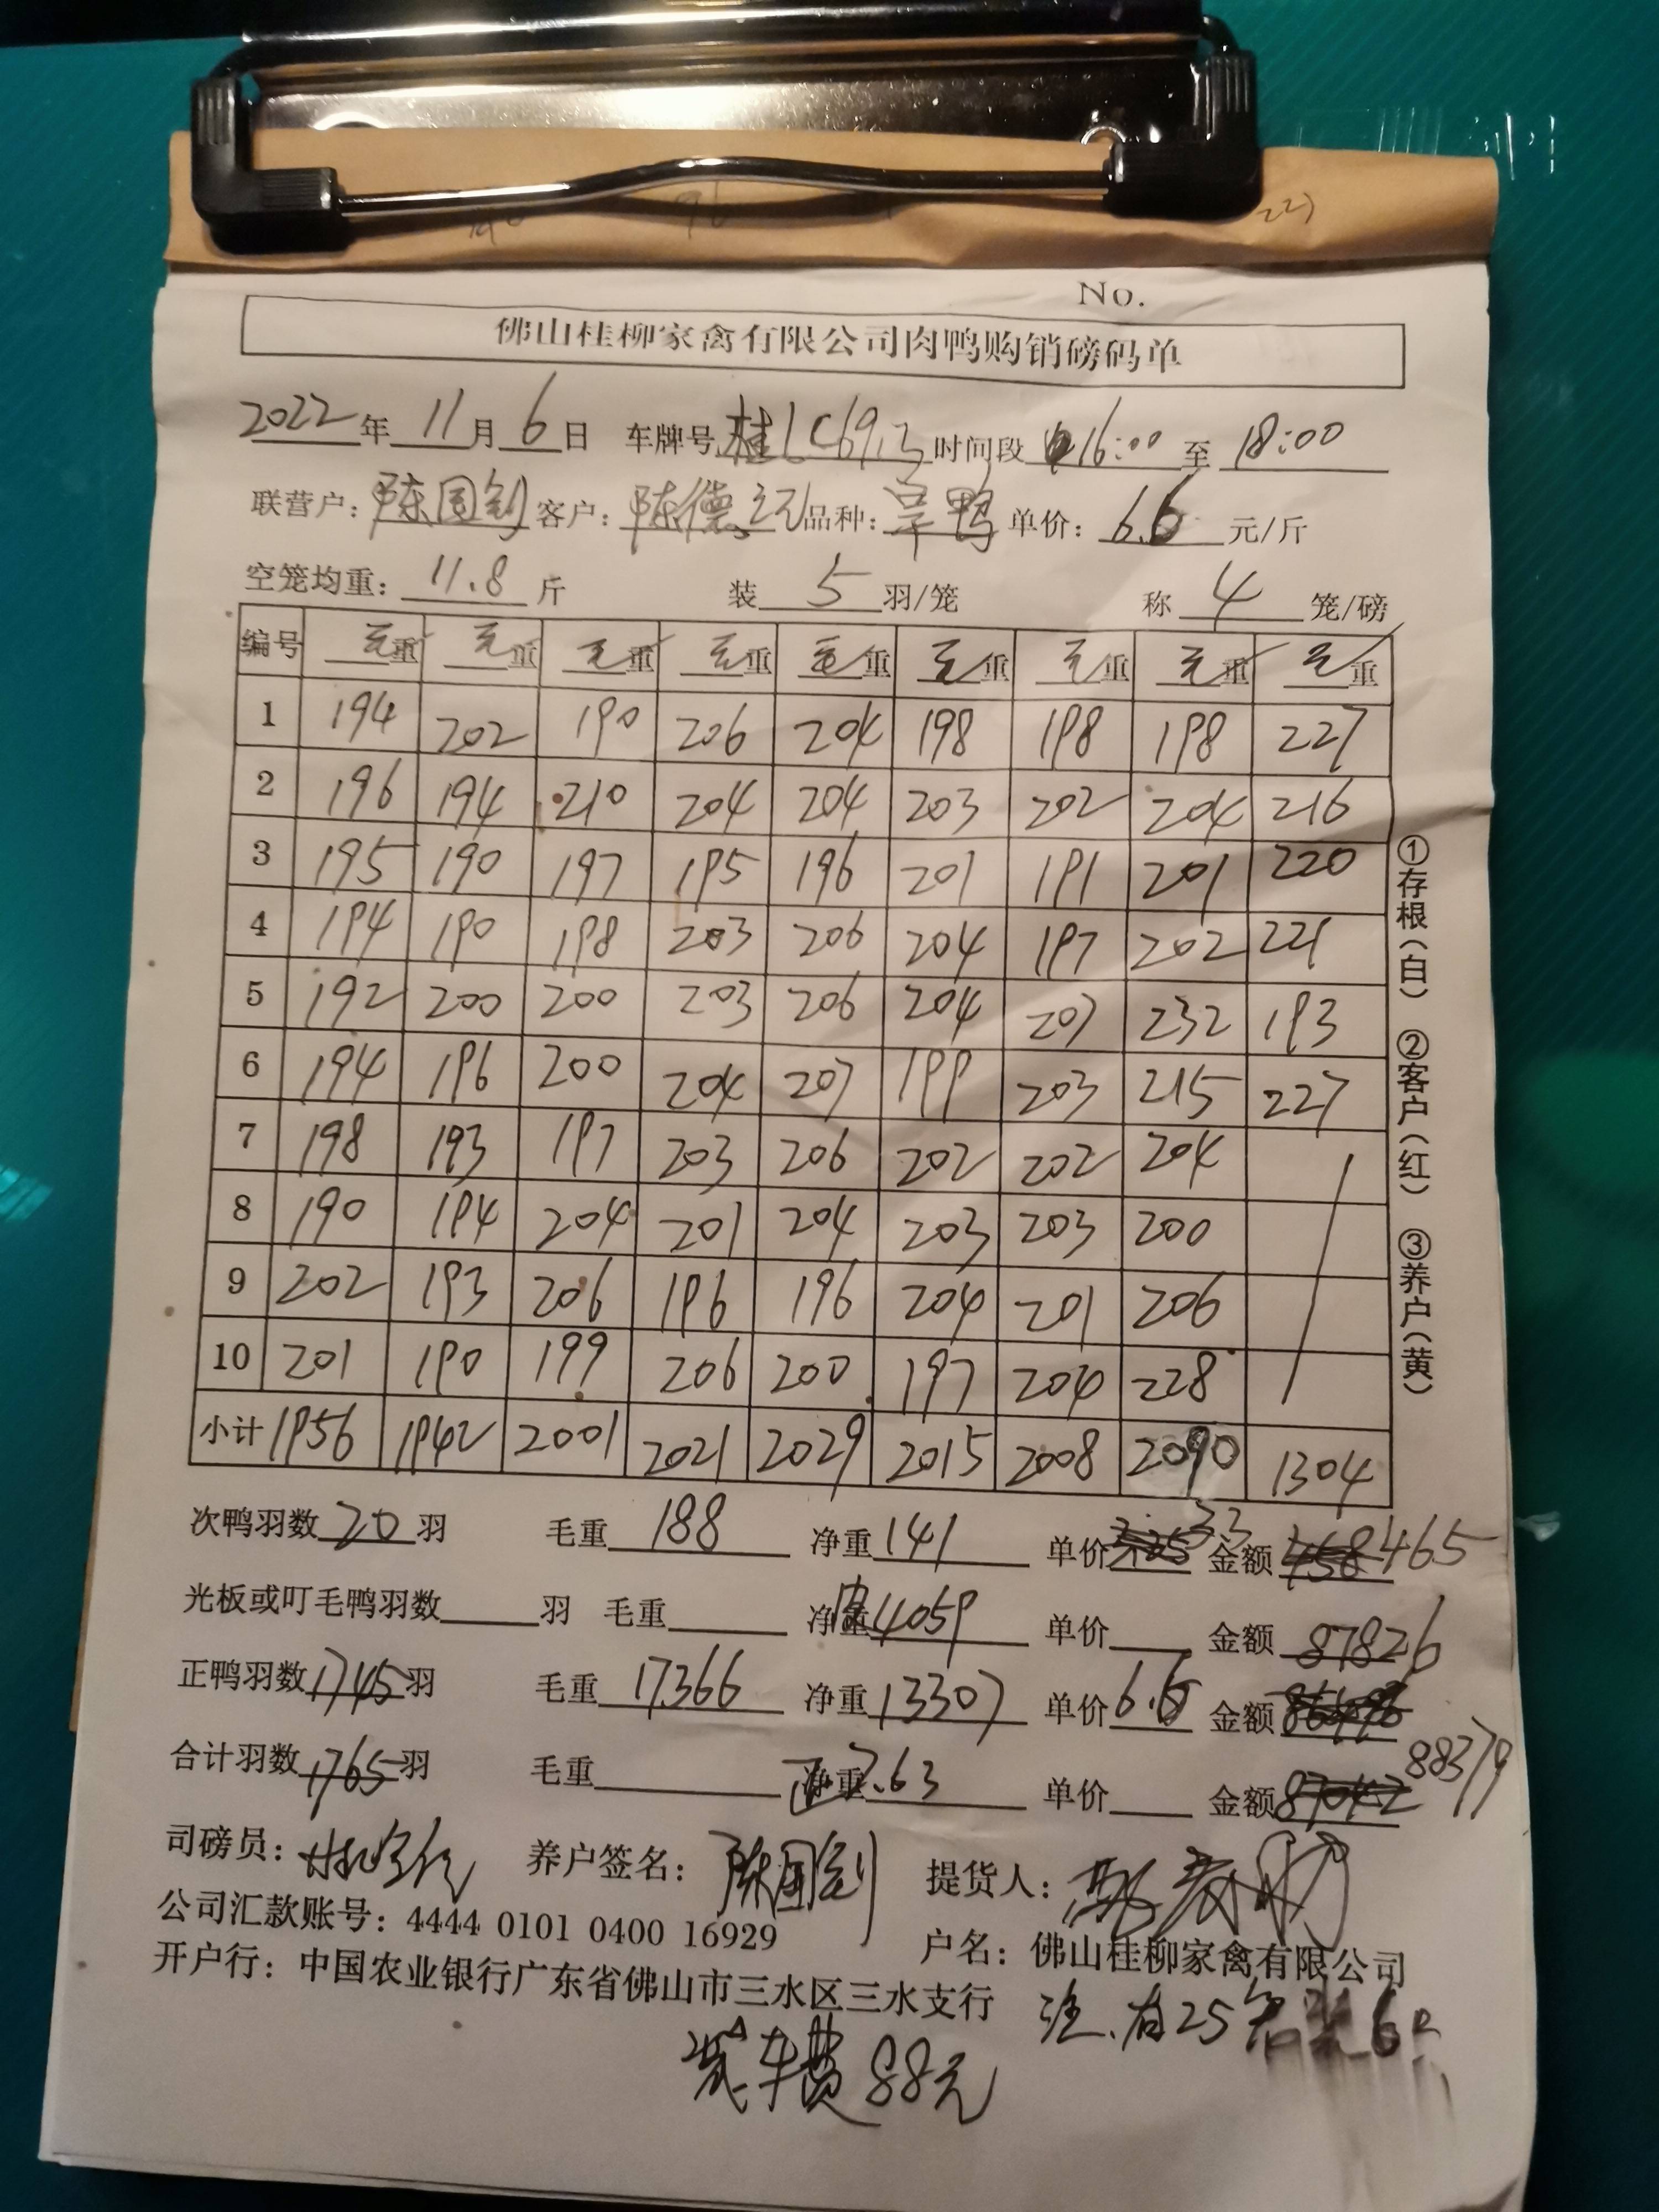 No.
佛山桂柳家禽有限公司肉鸭购销磅码单
2022年 11月 6日 车牌号 桂LC69 时间段 16:00 至 18:00
联营户：陈国钊 客户：陈德 品种： 鸭 单价：6.6 元/斤
空笼均重：11.8 斤 装 5 羽/笼 称 4 笼/磅
编号 毛重 毛重 毛重 毛重 毛重 毛重 毛重 毛重 毛重
1 194 202 190 206 204 198 198 198 227
2 196 194 210 204 204 203 202 204 216
3 195 190 197 195 196 201 191 201 220
4 194 190 198 203 206 204 197 202 221
5 192 200 200 203 206 204 207 232 193
6 194 196 200 204 207 199 203 215 227
7 198 193 197 203 206 202 202 204
8 190 194 204 201 204 203 203 200
9 202 193 206 196 196 204 201 206
10 201 190 199 206 200 197 204 228
小计 1956 1942 2001 2021 2029 2015 2008 2090 1304
①存根（白） ②客户（红） ③养户（黄）
次鸭羽数 20 羽 毛重 188 净重 141 单价 3.3 金额 465
光板或叮毛鸭羽数 羽 毛重 净重 皮4059 单价 金额 87826
正鸭羽数 1745 羽 毛重 17366 净重 13307 单价 6.6 金额
合计羽数 1765 羽 毛重 净重 7.63 单价 金额 87042 88379
司磅员： 养户签名：陈国钊 提货人：
公司汇款账号：4444 0101 0400 16929 户名：佛山桂柳家禽有限公司
开户行：中国农业银行广东省佛山市三水区三水支行
注、有25笼装6只
装车费88元